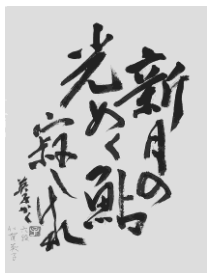 新月の
光めく鮎
寂しけれ